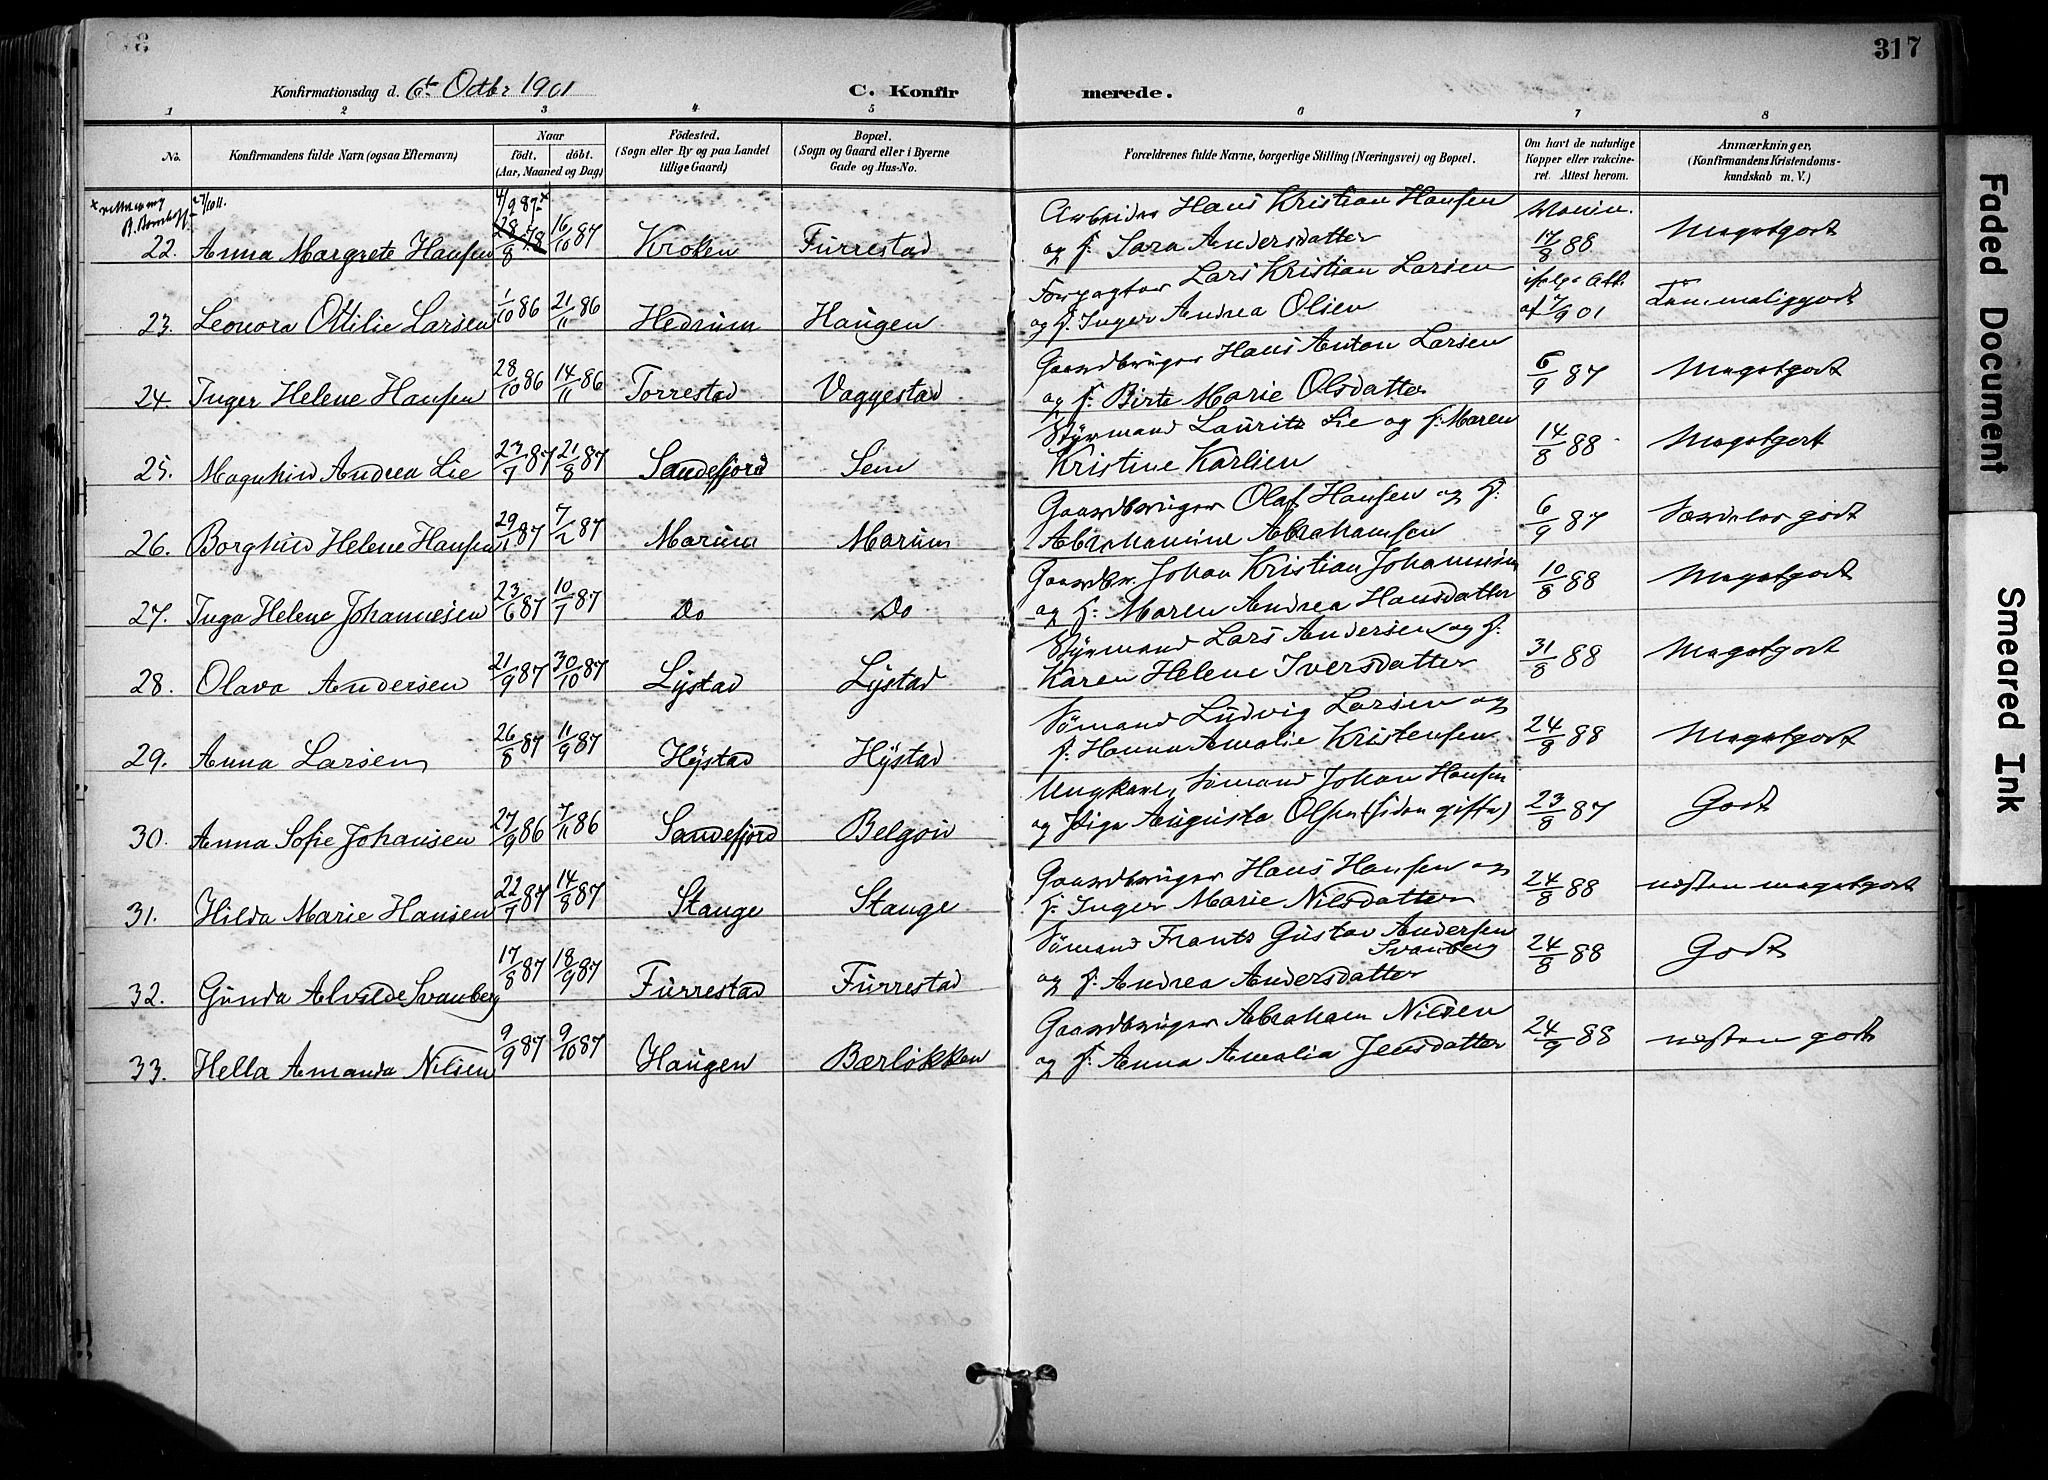 317
Konfirmationsdag d. 6te Octbr 1901 C. Konfirmerede.
1 2 3 4 5 6 7 8
No. Konfirmandens fulde Navn (ogsaa Efternavn) Naar født, døbt. (Aar, Maaned og Dag) Födested. (Sogn eller By og paa Landet tillige Gaard) Bopæl. (Sogn og Gaard eller i Byerne Gade og Hus-No. Forældrenes fulde Navne, borgerlige Stilling (Næringsvei) og Bopæl. Om havt de naturlige Kopper eller vakcineret. Attest herom. Anmærkninger, (Konfirmandens Kristendomskundskab m. V.)
4/9 87 x
22. Anna Margrete Hansen 28/8 78 16/10 87 Kroken Furrestad Arbeider Hans Kristian Hansen
og f. Sara Andersdatter 17/8 88 Megetgodt
23. Leonora Ottilie Larsen 1/10 86 21/11 86 Hedrum Haugen Forpagter Lars Kristian Larsen
og f. Inger Andrea Olsen ifølge Att. af 7/9 01 Temmeliggodt
24. Inger Helene Hansen 28/10 86 14/11 86 Torrestad Vaggestad Gaardbruger Hans Anton Larsen
og f. Birte Marie Olsdatter 6/9 87 Megetgodt
25. Magnhild Andrea Lie 23/7 87 21/8 87 Sandefjord Sem Styrmand Laurits Lie og f. Maren
Kristine Karlsen 14/8 88 Megetgodt
26. Borghild Helene Hansen 29/1 87 7/2 87 Marum Marum Gaardbruger Olaf Hansen og f.
Abrahamine Abrahamsen 6/9 87 Særdeles godt
27. Inga Helene Johannesen 23/6 87 10/7 87 Do Do Gaardbr. Johan Kristian Johannesen
og f. Maren Andrea Hansdatter 10/8 88 Megetgodt
28. Olava Andersen 21/9 87 30/10 87 Lystad Lystad Styrmand Lars Andersen og f.
Karen Helene Iversdatter 31/8 88 Megetgodt
29. Anna Larsen 26/8 87 11/9 87 Hystad Hystad Sømand Ludvig Larsen og
f. Hanna Amalie Kristensen 24/8 88 Megetgodt
30. Anna Sofie Johansen 27/9 86 7/11 86 Sandefjord Belgön Ungkarl, Sømand Johan Hansen
og Pige Augusta Olsen (siden gifte) 23/8 87 Godt
31. Hilda Marie Hansen 22/7 87 14/8 87 Stange Stange Gaardbruger Hans Hansen og
f. Inger Marie Nilsdatter 24/8 88 næsten megetgodt
32. Gunda Alvilde Svanberg 17/8 87 18/9 87 Furrestad Furrestad Sømand Frants Gustav Andersen
Svanberg
og f. Andrea Andersdatter 24/8 88 Godt
33. Hella Amanda Nilsen 9/9 87 9/10 87 Haugen Bærløkken Gaardbruger Abraham Nilsen
og f. Anna Amalia Jensdatter 24/9 88 næsten godt
Faded Document
Smeared Ink